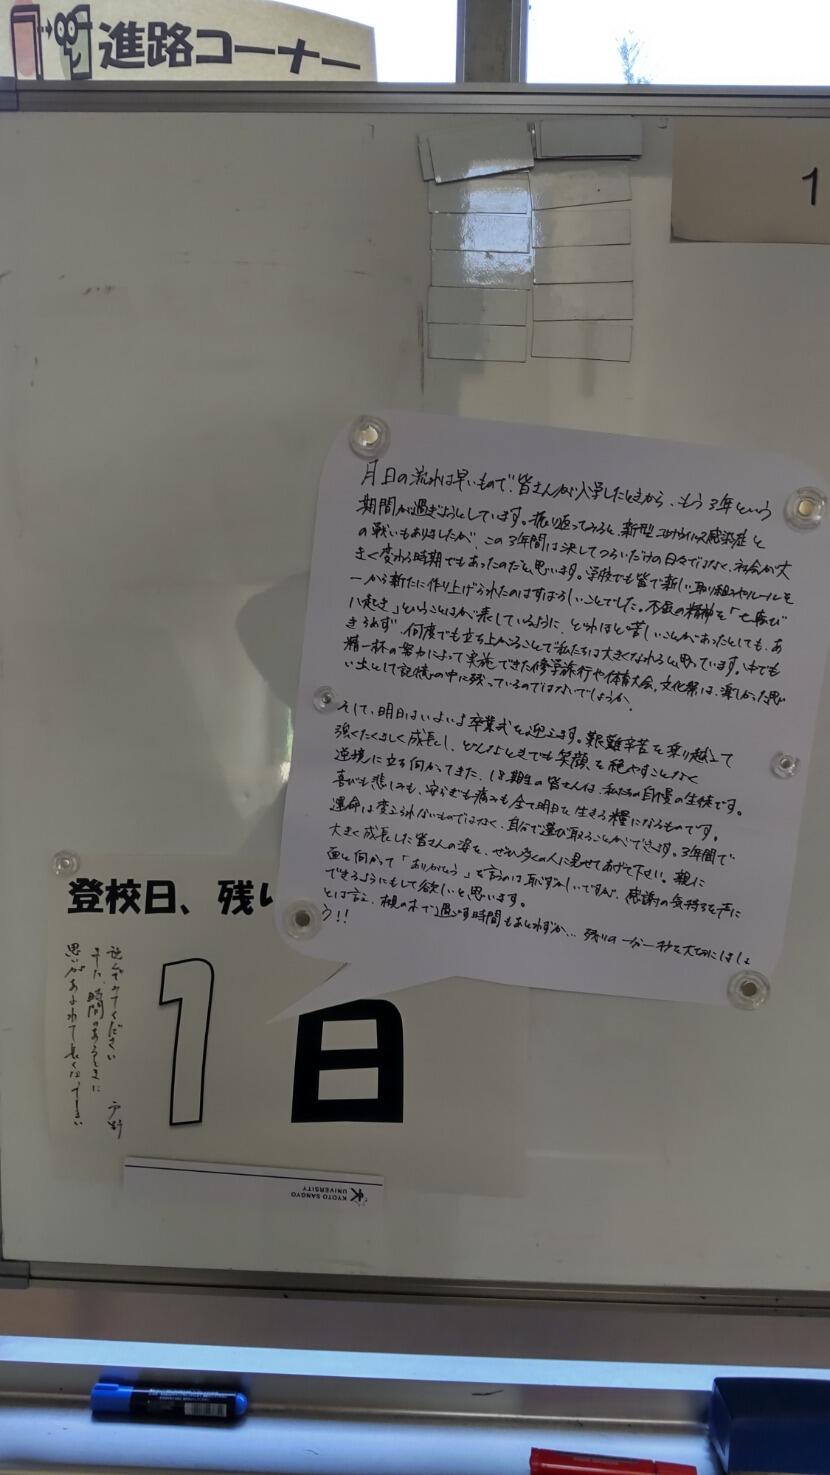 進路コーナー
1
月日の流れは早いもので、皆さんが入学したときから、もう3年という
期間が過ぎようとしています。振り返ってみると、新型コロナウイルス感染症と
の戦いもありましたが、この3年間は決してつらいだけの日々ではなく、社会が大
きく変わる時期でもあったのだと思います。学校でも皆で新しい取り組みやルールを
一から新たに作り上げられたのはすばらしいことでした。不屈の精神を「七転び
八起き」ということばが表しているように、どれほど苦しいことがあったとしても、あ
きらめず、何度でも立ち上がることで私たちは大きくなれると思っています。中でも
精一杯の努力によって実施できた修学旅行や体育大会、文化祭は、楽しかった思
い出として記憶の中に残っているのではないでしょうか。
そして、明日はいよいよ卒業式を迎えます。艱難辛苦を乗り越えて
強くたくましく成長し、どんなときでも笑顔を絶やすことなく
逆境に立ち向かってきた、18期生の皆さんは、私たちの自慢の生徒です。
喜びも悲しみも、安らぎも痛みも全て明日を生きる糧になるものです。
運命は変えられないものではなく、自分で選び取ることができます。3年間で
大きく成長した皆さんの姿を、ぜひ多くの人に見せてあげて下さい。親に
面と向かって「ありがとう」を言うのは恥ずかしいですが、感謝の気持ちを声に
できるようにもして欲しいと思います。
とは言え、桃の木で過ごす時間もあとわずか… 残りの一分一秒を大切にしましょ
う!!
登校日、残り
1日
思いがあふれて長くなってしまい
ました。時間のあるときに
読んでみてください
KYOTO SANGYO
UNIVERSITY